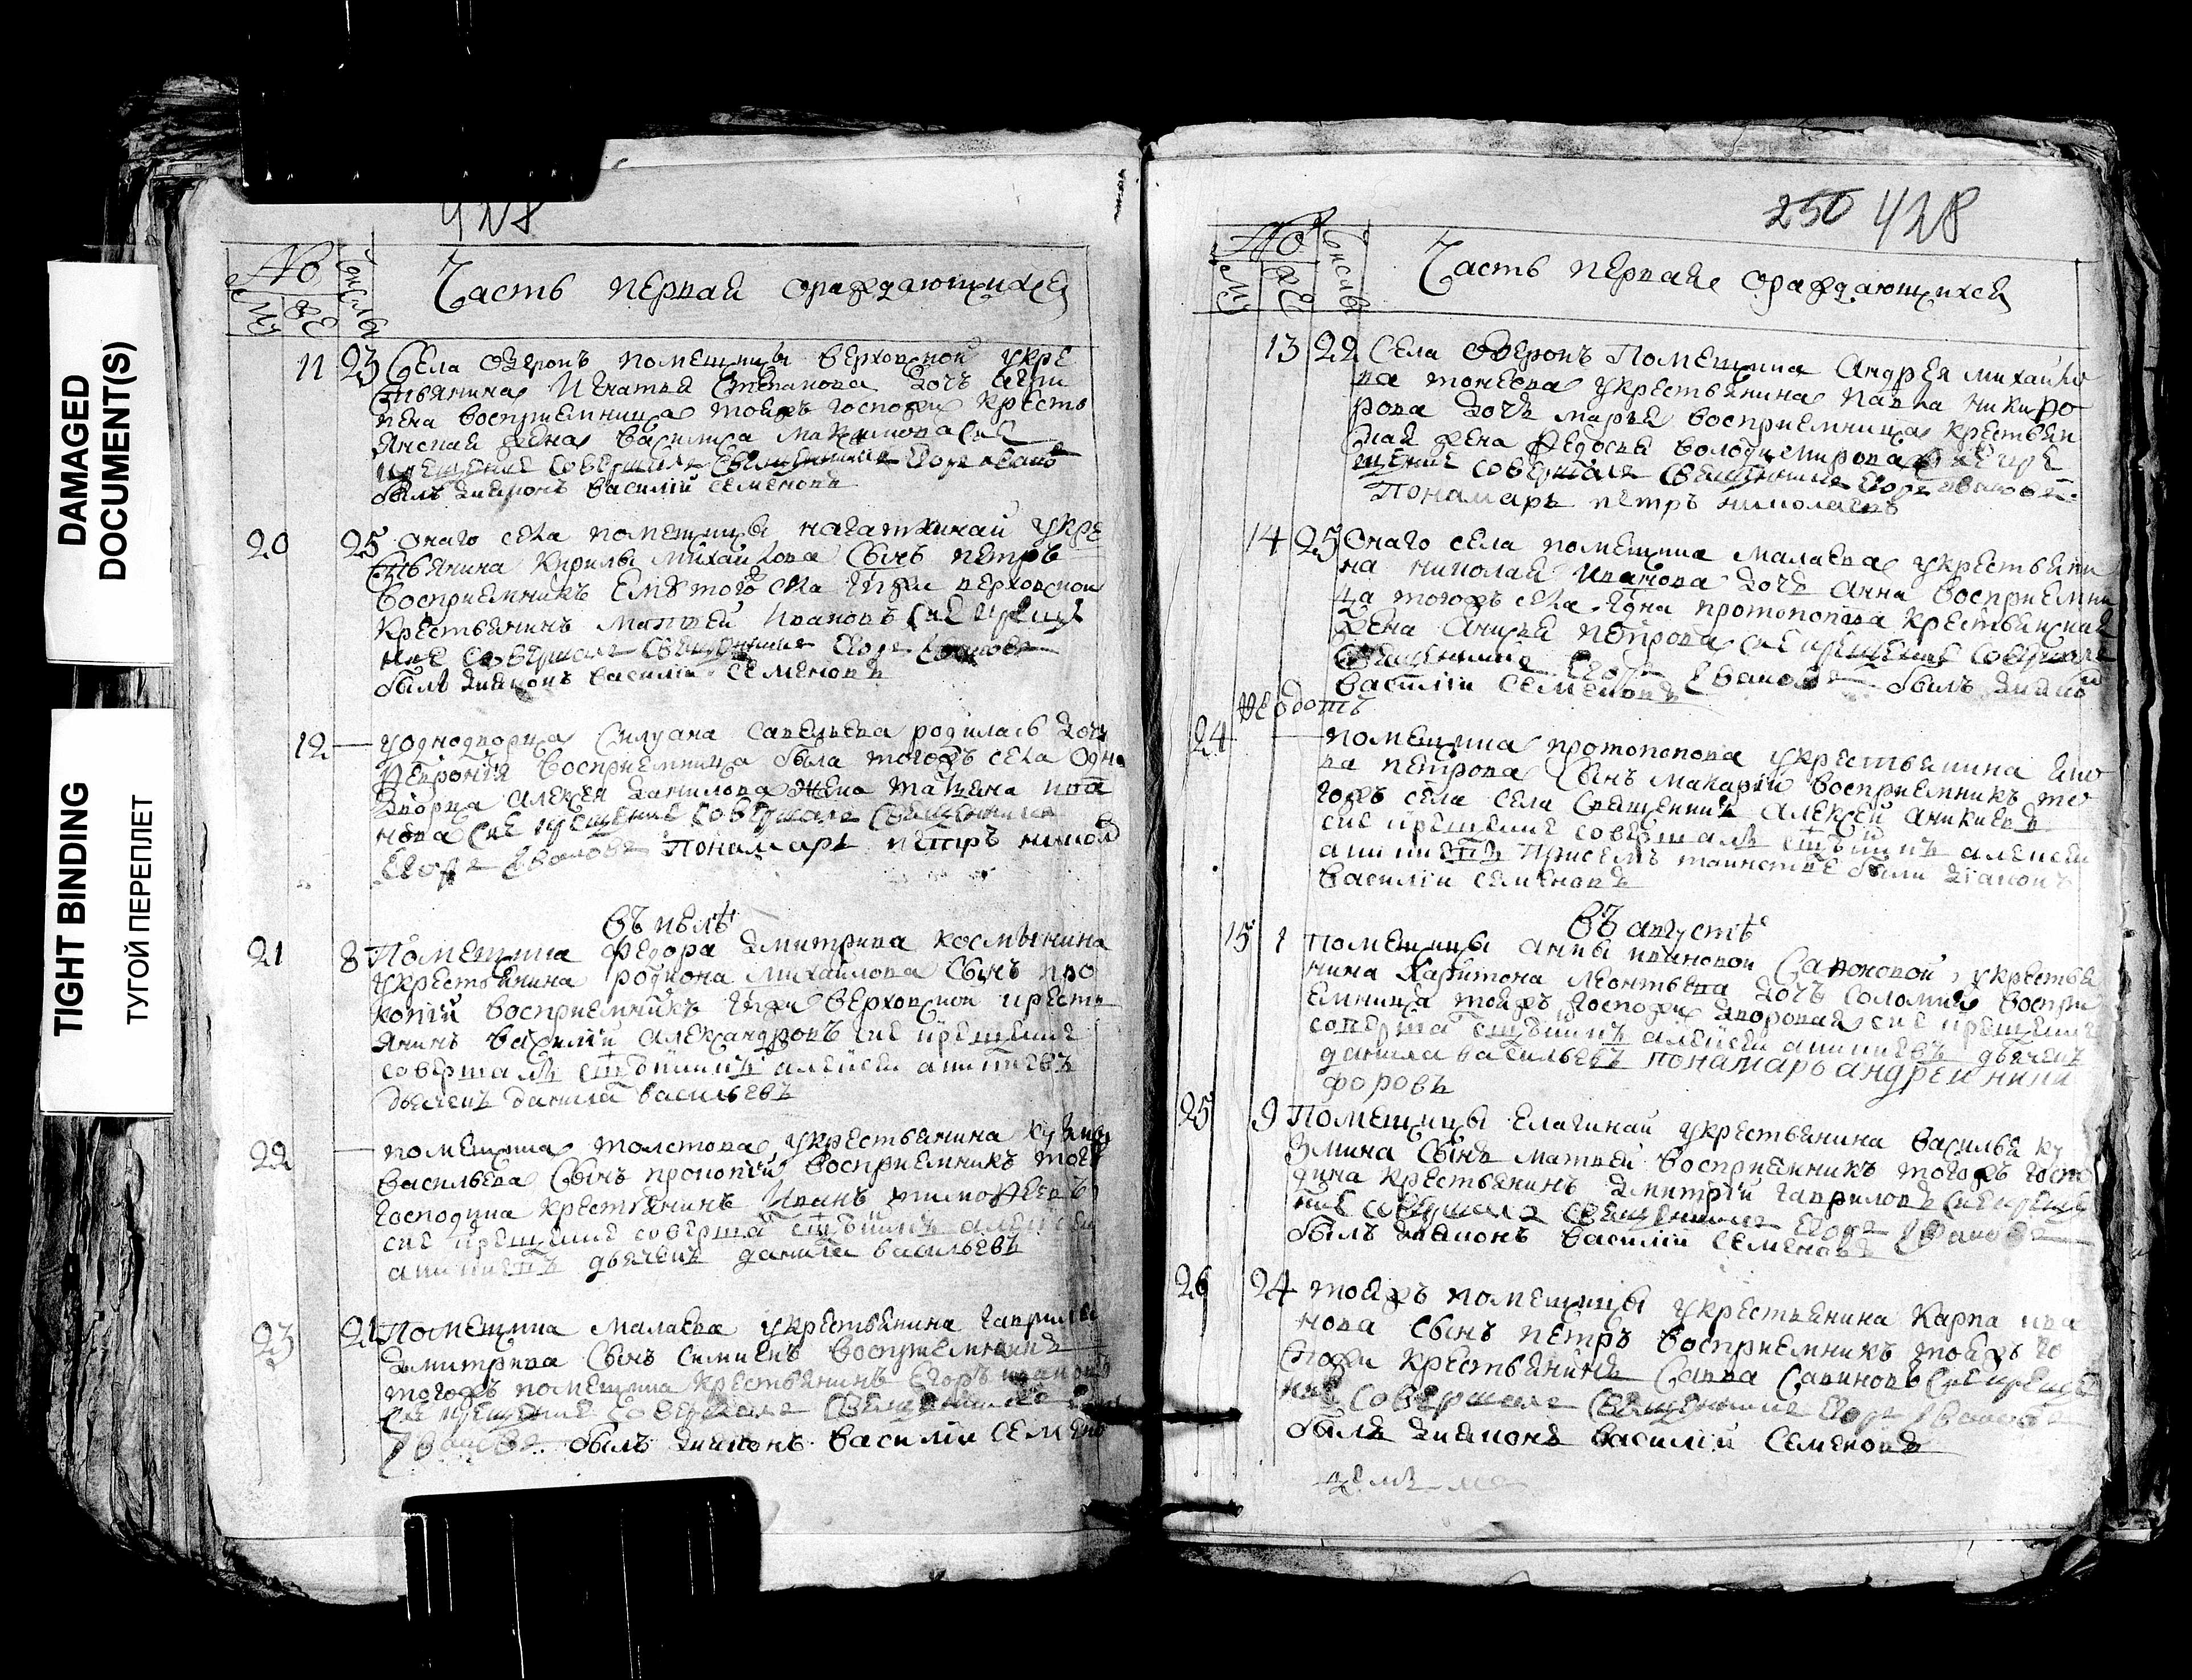 DAMAGED
DOCUMENT(S)
TIGHT BINDING
ТУГОЙ ПЕРЕПЛЕТ
428
№
числы
Му
Же
Часть первая ораждающихся
11 23 Села Озерокъ помещицы верховской укре
стьянина Игнатья Степанова дочь Агри
пена восприемница тояжъ госпожи кресть
янская жена Василиса Максимова сие
крещение совершалъ священникъ Егоръ Ивановъ
былъ диаконъ василий семеновъ
20 25 онаго села помещицы нагаткинай укре
стьянина Кирилы михайлова сынъ петръ
восприемникъ ему того села гпжи верховской
крестьянинъ матвей Ивановъ сие креще
ние совершалъ священникъ Егоръ Ивановъ
былъ диаконъ василий семеновъ
12 — уоднодворца Силуана савельева родилась дочь
Февронiя восприемница была тогожъ села одно
дворца алексея данилова жена татьяна ива
нова сие крещение совершалъ священникъ
Егоръ Ивановъ Понамарь петръ никол
въ июлѣ
21 8 Помещика Федора дмитрива космынина
укрестьянина родиона михайлова сынъ про
копiй восприемникъ гпжи верховской кресть
янинъ василий александровъ сие крещение
совершалъ сщенникъ алексей аникиевъ
дьячекъ данила васильевъ
22 — помещика толстова укрестьянина кузмы
васильева сынъ прокопiй восприемникъ тогожъ
господина крестьянинъ Иванъ тимофеевъ
сие крещение совершалъ сщенникъ алексей
аникиевъ дьячекъ данила васильевъ
23 21 Помещика малаева укрестьянина гаврилы
дмитрива сынъ симионъ восприемникъ
тогожъ помещика крестьянинъ Егоръ ивановъ
сие крещение совершалъ священникъ Егоръ
Ивановъ былъ диаконъ василий семено
250 428
№
числы
Му
Же
Часть первая ораждающихся
13 22 Села озерокъ Помещика Андрея михайло
ва тонеева укрестьянина павла никифо
рова дочь марья восприемница крестьян
ская жена Федосья володимирова сие кре
щение совершалъ священникъ Егоръ Ивановъ
Понамарь петръ николаевъ
14 25 Онаго села помещика малаева укрестьяни
на николая Иванова дочь анна восприемни
ца тогожъ села гдна протопопова крестьянская
жена Анисья петрова сие крещение совершалъ
священникъ Егоръ Ивановъ былъ диакон
василий семеновъ
Федотъ
24 — помещика протопопова укрестьянина Яко
ва петрова сынъ макарiй восприемникъ то
гожъ села села священникъ алексей аникиевъ
сие крещение совершалъ сщенникъ алексей
аникиевъ присемъ таинстве были дiаконъ
василiй семеновъ
въ августѣ
15 1 помещицы анны ивановой Сапоковой укрестья
нина Харитона леонтьева дочь соломия воспри
емница тояжъ госпожи дворовая сие крещение
совершалъ сщенникъ алексей аникиевъ дьячекъ
данила васильевъ понамарь андрей ники
форовъ
25 9 Помещицы Елагинай укрестьянина василья ку
змина сынъ матвей восприемникъ тогожъ госпо
дина крестьянинъ дмитрiй гавриловъ сие креще
ние совершалъ священникъ Егоръ Ивановъ
былъ диаконъ василiй семеновъ
26 24 тояжъ помещицы укрестьянина Карпа ива
нова сынъ петръ восприемникъ тояжъ го
спожи крестьянинъ Савва Савиновъ сие креще
ние совершалъ священникъ Егоръ Ивановъ
былъ диаконъ василiй семеновъ